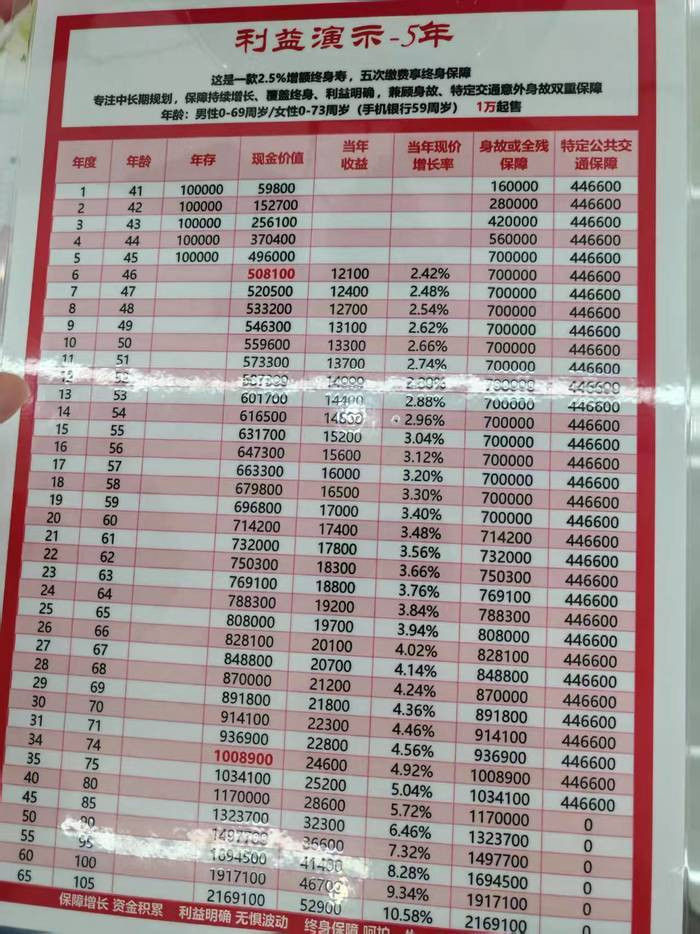 利益演示-5年
这是一款2.5%增额终身寿，五次缴费享终身保障
专注中长期规划，保障持续增长、覆盖终身、利益明确，兼顾身故、特定交通意外身故双重保障
年龄：男性0-69周岁/女性0-73周岁（手机银行59周岁） 1万起售
年度 年龄 年存 现金价值 当年收益 当年现价增长率 身故或全残保障 特定公共交通保障
1 41 100000 59800 160000 446600
2 42 100000 152700 280000 446600
3 43 100000 256100 420000 446600
4 44 100000 370400 560000 446600
5 45 100000 496000 700000 446600
6 46 508100 12100 2.42% 700000 446600
7 47 520500 12400 2.48% 700000 446600
8 48 533200 12700 2.54% 700000 446600
9 49 546300 13100 2.62% 700000 446600
10 50 559600 13300 2.66% 700000 446600
11 51 573300 13700 2.74% 700000 446600
12 52 14000 2.80% 700000 446600
13 53 601700 14400 2.88% 700000 446600
14 54 616500 14800 2.96% 700000 446600
15 55 631700 15200 3.04% 700000 446600
16 56 647300 15600 3.12% 700000 446600
17 57 663300 16000 3.20% 700000 446600
18 58 679800 16500 3.30% 700000 446600
19 59 696800 17000 3.40% 700000 446600
20 60 714200 17400 3.48% 714200 446600
21 61 732000 17800 3.56% 732000 446600
22 62 750300 18300 3.66% 750300 446600
23 63 769100 18800 3.76% 769100 446600
24 64 788300 19200 3.84% 788300 446600
25 65 808000 19700 3.94% 808000 446600
26 66 828100 20100 4.02% 828100 446600
27 67 848800 20700 4.14% 848800 446600
28 68 870000 21200 4.24% 870000 446600
29 69 891800 21800 4.36% 891800 446600
30 70 914100 22300 4.46% 914100 446600
31 71 936900 22800 4.56% 936900 446600
34 74 1008900 24600 4.92% 1008900 446600
35 75 1034100 25200 5.04% 1034100 446600
40 80 1170000 28600 5.72% 1170000 0
45 85 1323700 32300 6.46% 1323700 0
50 90 1497700 36600 7.32% 1497700 0
55 95 1694500 41400 8.28% 1694500 0
60 100 1917100 46700 9.34% 1917100 0
65 105 2169100 52900 10.58% 2169100 0
保障增长 资金积累 利益明确 无惧波动 终身保障 呵护